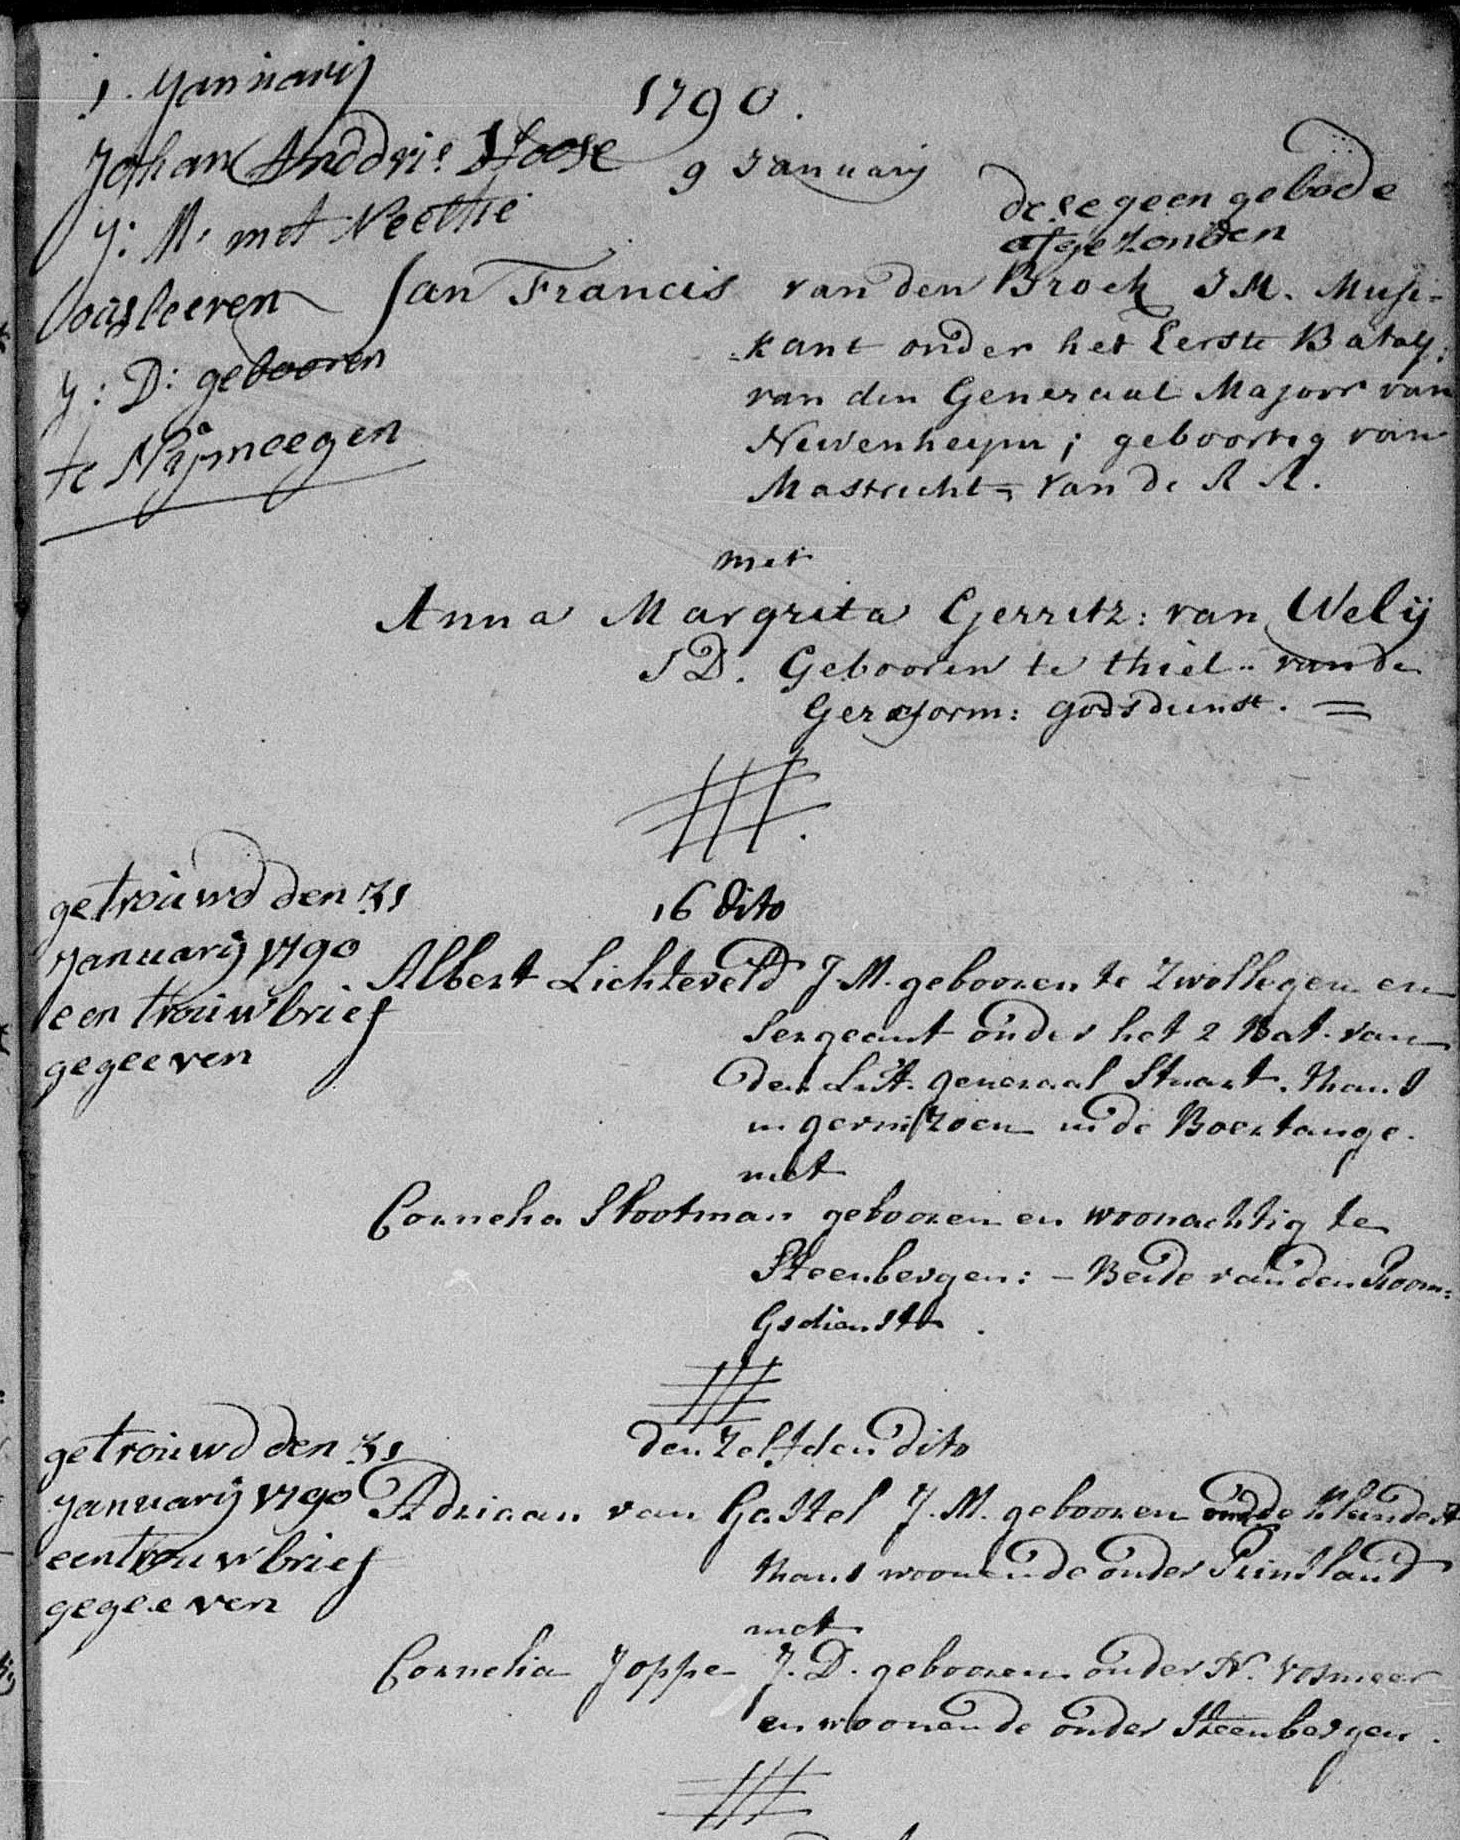 1. Januarij
Johan Anddri: Hoose
J: M: met Neeltie
Housleeren
J: D: gebooren
te Nijmeegen
1790.
9 Januarij
dese geen gebode
afgezonden
Jan Francis van den Broek J M. Musi-
kant onder het Eerste Bataly:
van den Generaal Majoor van
Nuvenheym; geboortig van
Mastricht = van de R R.
met
Anna Margrita Gerritz: van Welij
J D. Gebooren te thiel .. van de
Gereform: godsdienst. =
getrouwd den 31
Januarij 1790
een trouwbrief
gegeeven
16 dito
Albert Lichteveld J M. gebooren te Zwollegen en
Sergeant onder het 2 Bat. van
den Lut. generaal Stuart. thans
in gernizoen in de Boertange.
met
Cornelia Slootman gebooren en woonachtig te
Steenbergen: - Beide van den Room=
Gsdienst .
getrouwd den 31
Januarij 1790
een trouwbrief
gegeeven
den zelfden dito
Adriaan van Gastel J. M. gebooren onder de Klundert
thans woonende onder Prinsland
met
Cornelia Joppe J. D. gebooren onder N. vosmeer
en woonende onder Steenbergen.